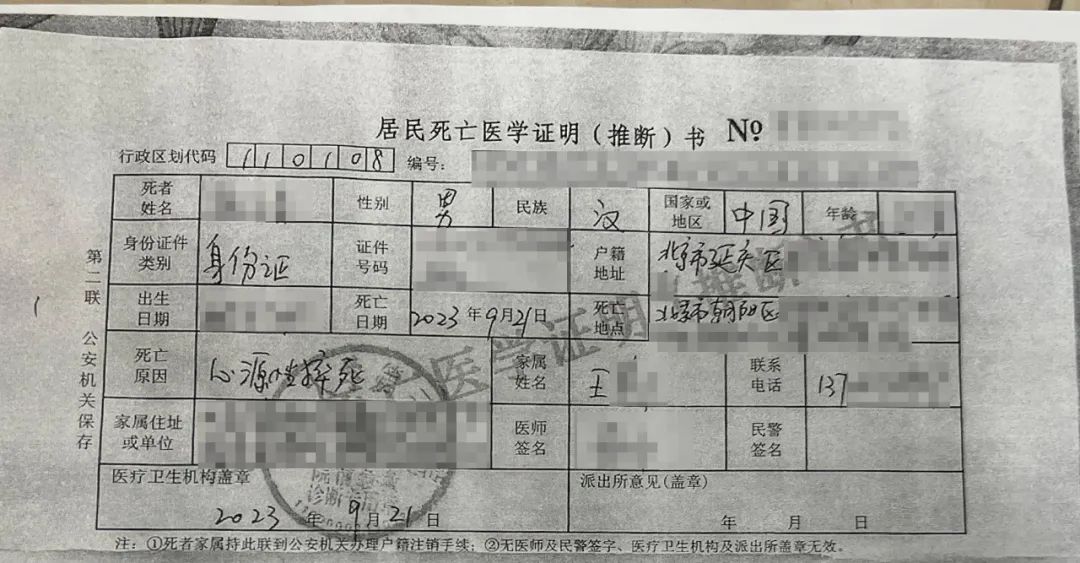 居民死亡医学证明（推断）书 №
行政区划代码 110108 编号：
死者姓名 性别 男 民族 汉 国家或地区 中国 年龄
身份证件类别 身份证 证件号码 户籍地址 北京市延庆区
出生日期 死亡日期 2023年9月21日 死亡地点 北京市朝阳区
死亡原因 心源性猝死 家属姓名 王 联系电话 137
家属住址或单位 医师签名 民警签名
医疗卫生机构盖章 派出所意见(盖章)
2023年9月21日 年 月 日
注：①死者家属持此联到公安机关办理户籍注销手续；②无医师及民警签字、医疗卫生机构及派出所盖章无效。
第二联 公安机关保存
医学证明（推断）
院前急救
诊断专用章